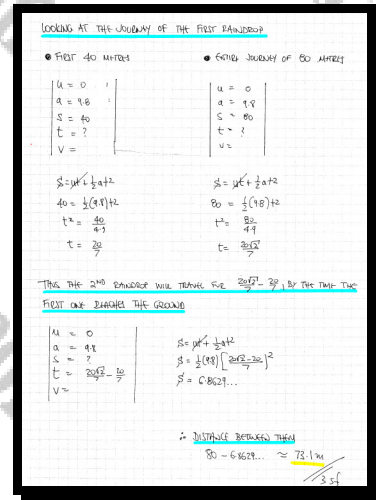 LOOKING AT THE JOURNEY OF THE FIRST RAINDROP
• FIRST 40 METRES
u = 0
a = 9.8
s = 40
t = ?
v =
s = ut + ½at²
40 = ½(9.8)t²
t² = 40/4.9
t = 20/7
• ENTIRE JOURNEY OF 80 METRES
u = 0
a = 9.8
s = 80
t = ?
v =
s = ut + ½at²
80 = ½(9.8)t²
t² = 80/4.9
t = 20√2/7
THUS THE 2ND RAINDROP WILL TRAVEL FOR 20√2/7 - 20/7, BY THE TIME THE
FIRST ONE REACHES THE GROUND
u = 0
a = 9.8
s = ?
t = 20√2/7 - 20/7
v =
s = ut + ½at²
s = ½(9.8)[20√2-20/7]²
s = 6.8629...
∴ DISTANCE BETWEEN THEM
80 - 6.8629... ≈ 73.1 m
3 sf